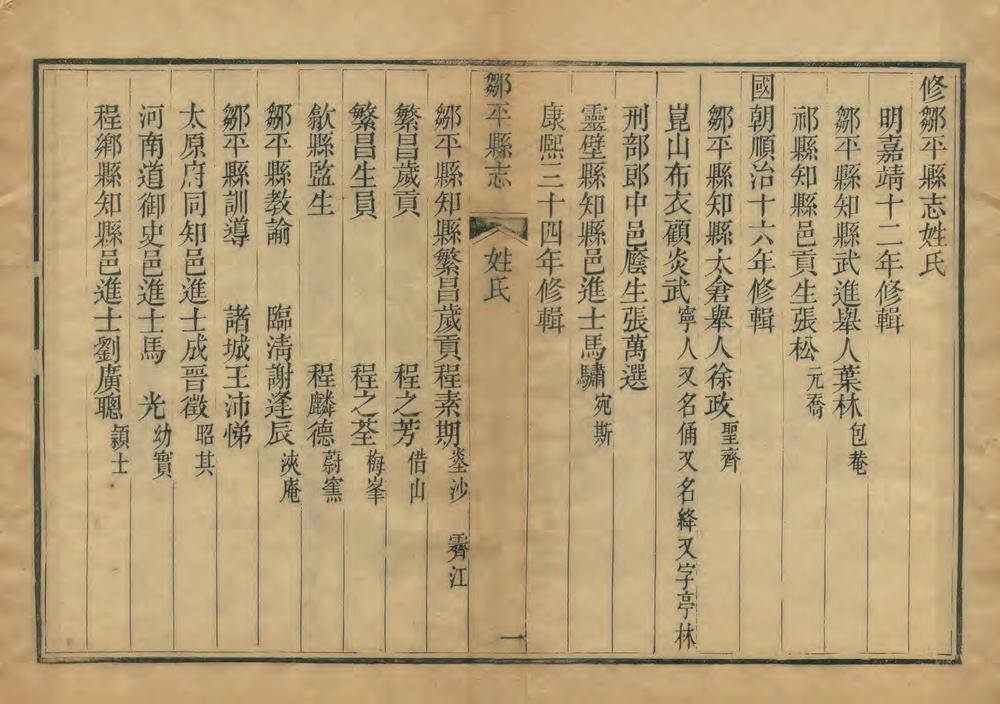 修鄒平縣志姓氏
明嘉靖十二年修輯
鄒平縣知縣武進舉人葉林 包菴
祁縣知縣邑貢生張松 元喬
國朝順治十六年修輯
鄒平縣知縣太倉舉人徐政 聖齊
崑山布衣顧炎武 寧人又名俑又名絳又字亭林
刑部郎中邑廕生張萬選
靈壁縣知縣邑進士馬驌 宛斯
康熙三十四年修輯
鄒平縣志 姓氏 一
鄒平縣知縣繁昌歲貢程素期 沙 霽江
繁昌歲貢 程之芳 借山
繁昌生員 程之荃 梅峯
歙縣監生 程麟德 蔚窰
鄒平縣教諭 臨淸謝逢辰 浹庵
鄒平縣訓導 諸城王沛悌
太原府同知邑進士成晉徵 昭其
河南道御史邑進士馬 光 幼實
程鄉縣知縣邑進士劉廣聰 穎士